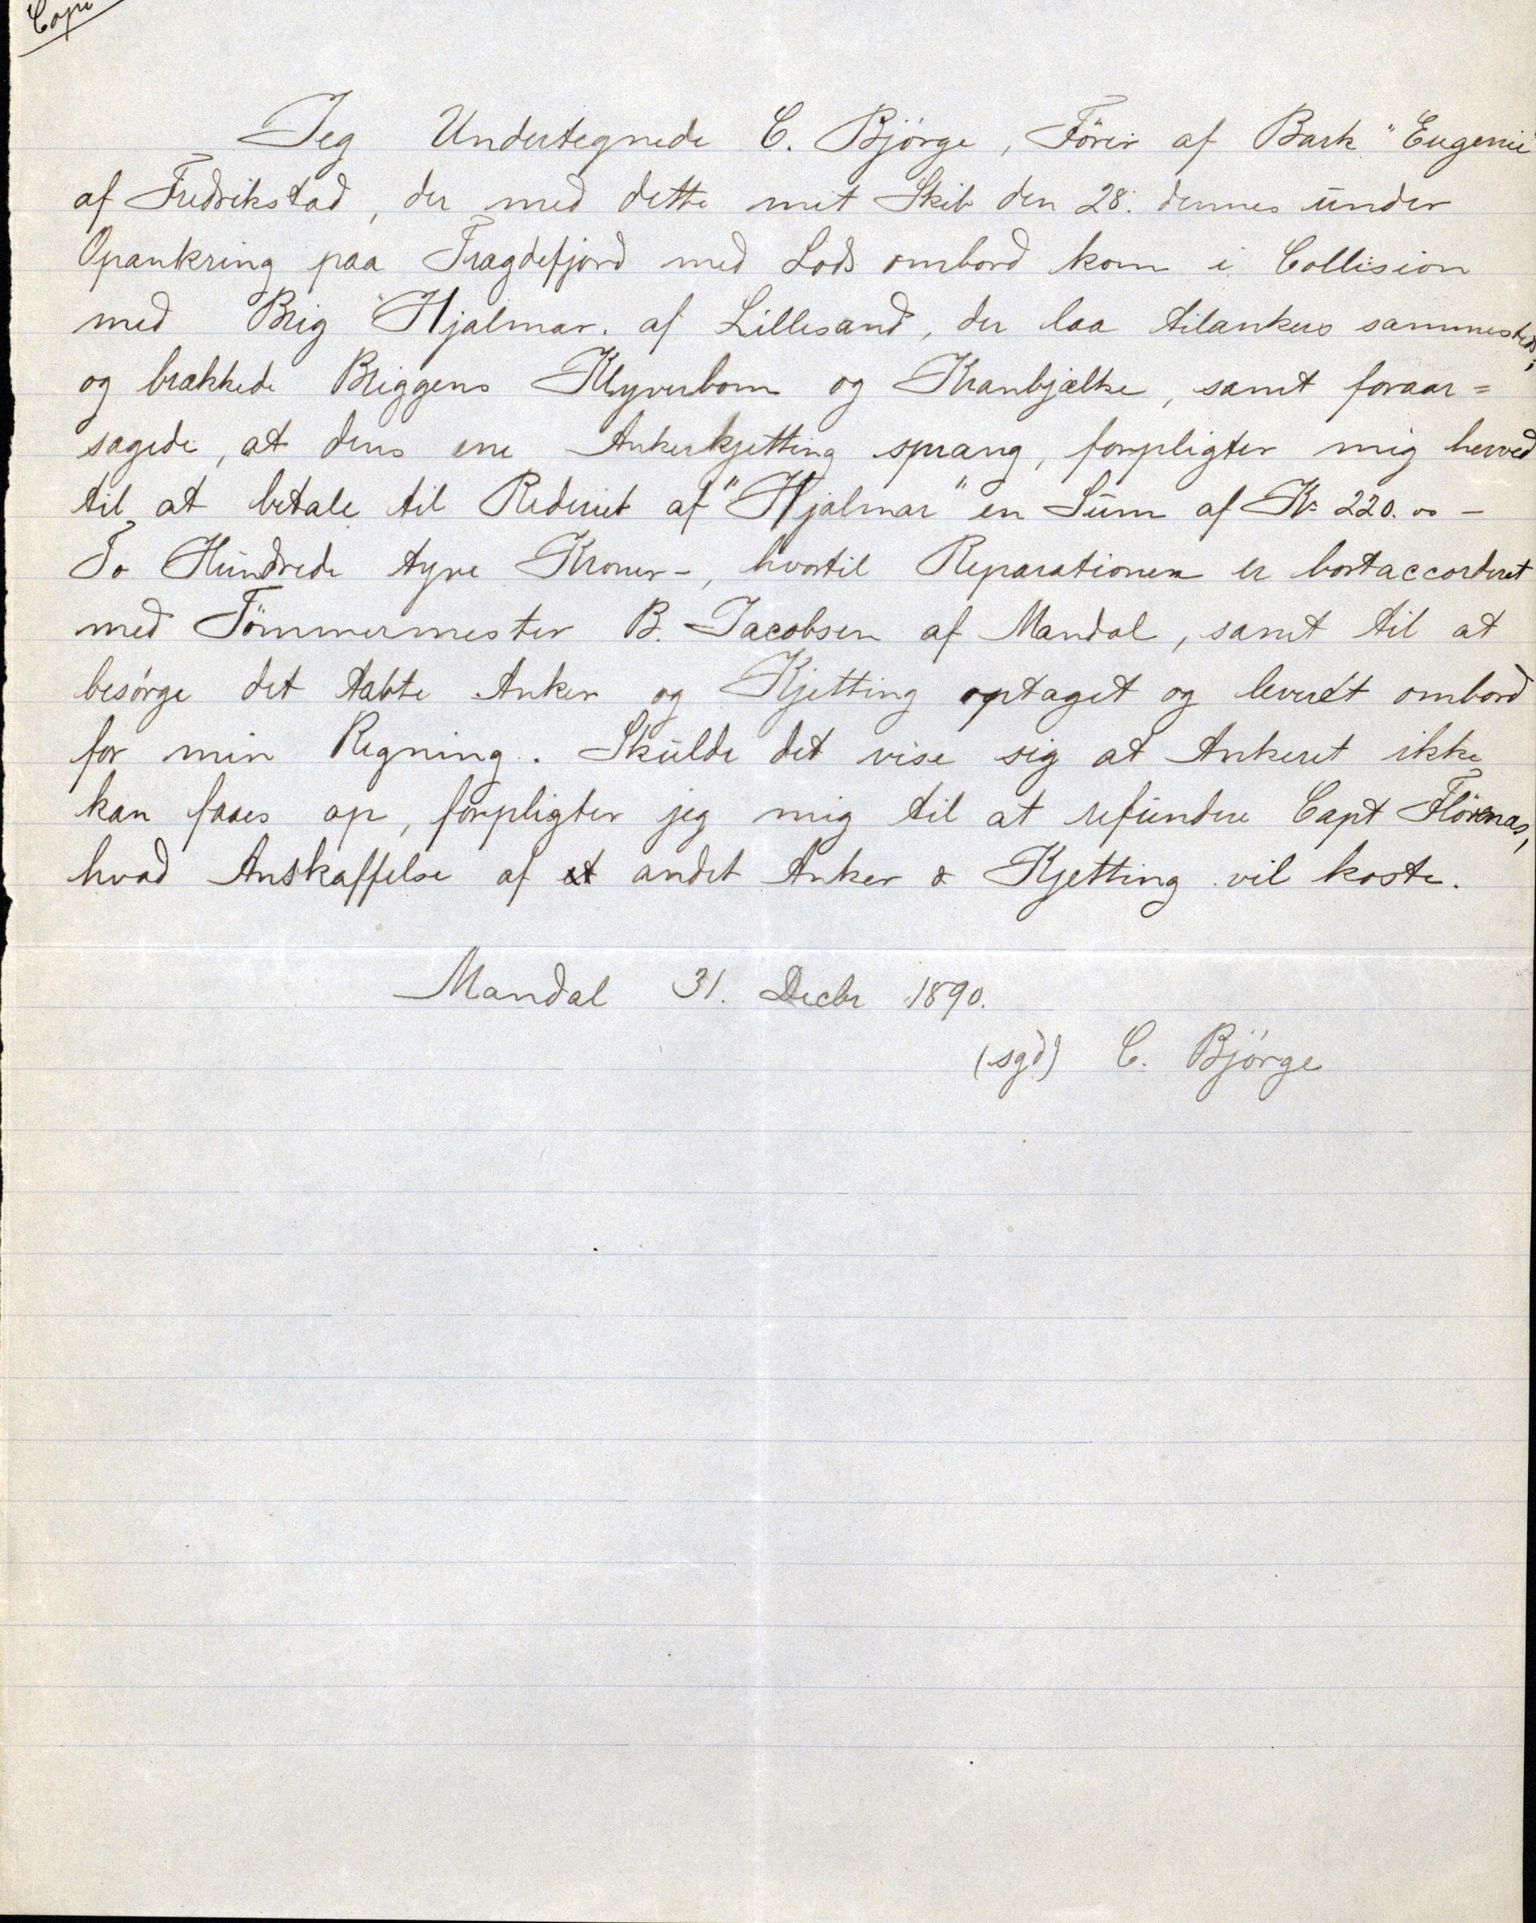 Copi
Jeg Undertegnede C. Bjørge, Förer af Bark "Eugenie
af Fredrikstad, der med dette mit Skib den 28. dennes under
Opankring paa Tragdefjord med Lods ombord kom i Collision
med Brig "Hjalmar. af Lillesand, der laa tilankers sammesteds,
og brækkede Briggens Klyverbom og Kranbjælke, samt foraar=
sagede, at dens ene Ankerkjetting sprang, forpligter mig herved
til at betale til Rederiet af "Hjalmar" en Sum af Kr 220.00 –
To Hundrede tyve Kroner –, hvortil Reparationen er bortaccorderet
med Tömmermester B. Jacobsen af Mandal, samt til at
besørge det tabte Anker og Kjetting optaget og leveret ombord
for min Regning. Skulde det vise sig at Ankeret ikke
kan faaes op, forpligter jeg mig til at refundere Capt Flörenas,
hvad Anskaffelse af et andet Anker & Kjetting vil koste.
Mandal 31. Decbr 1890.
(sgd) C. Bjørge